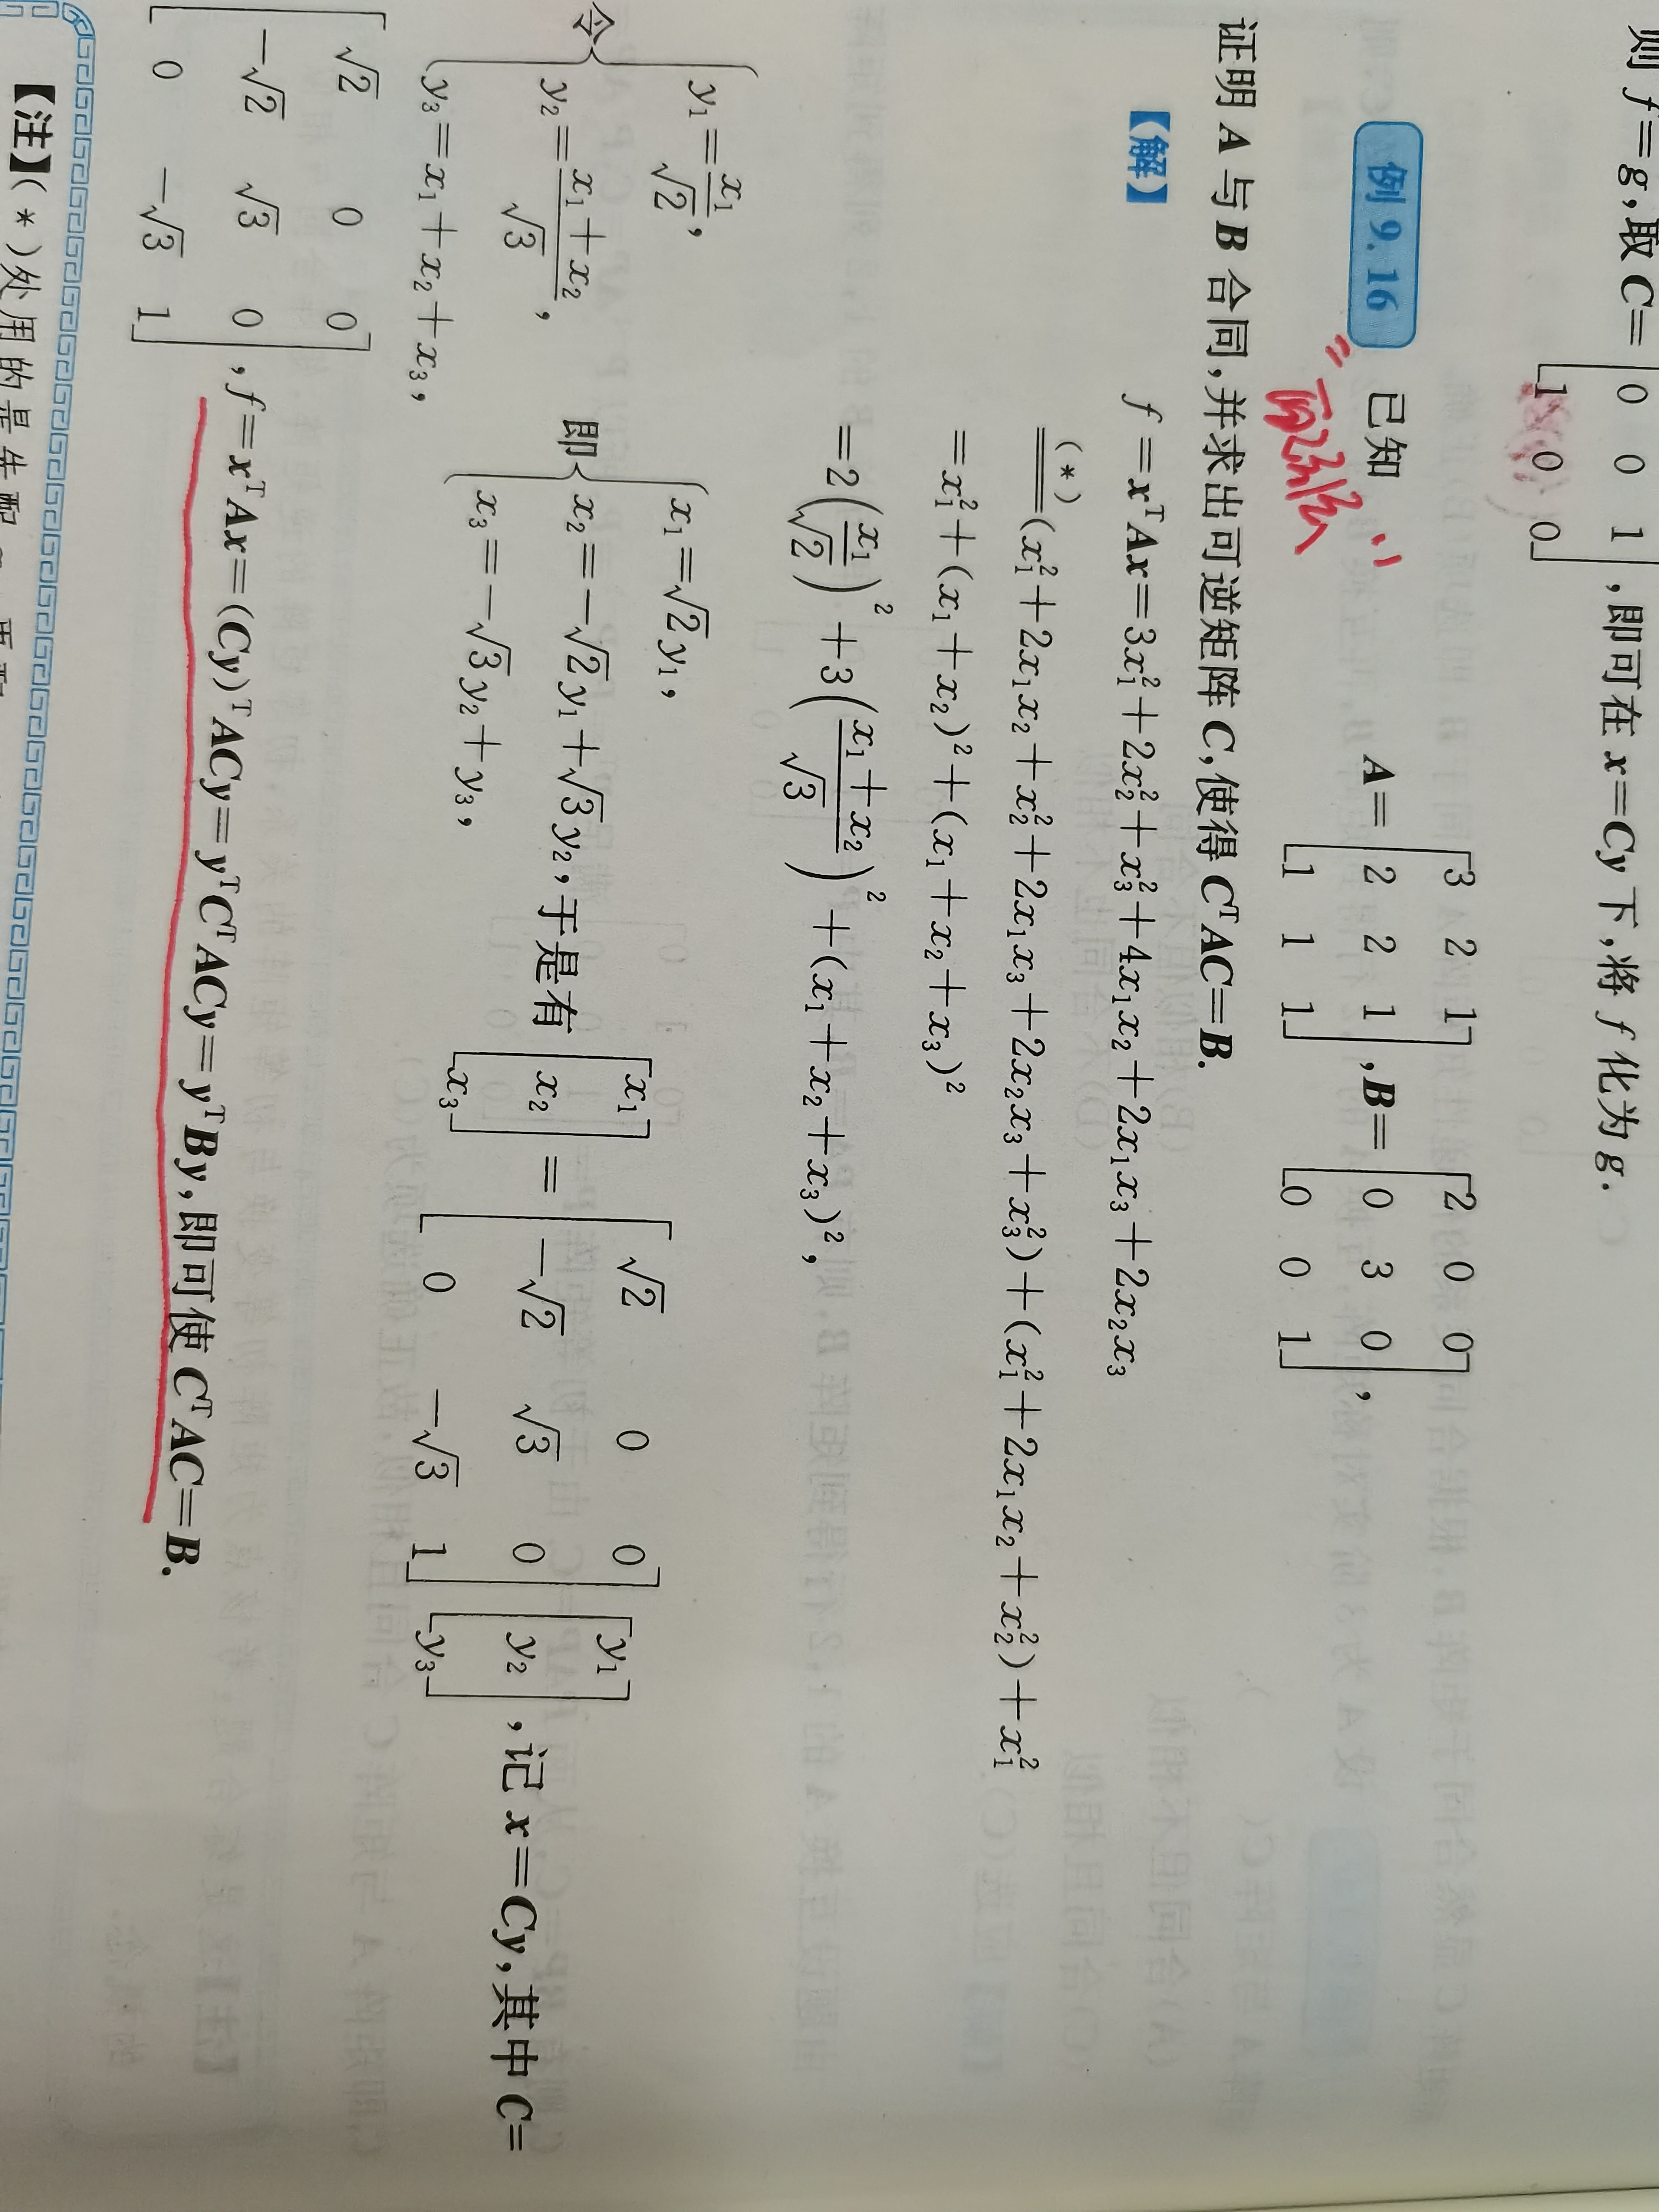 则 f=g,取 C=[0 0 1; 1 0 0],即可在 x=Cy 下,将 f 化为 g.
例 9.16 已知
A=[3 2 1; 2 2 1; 1 1 1],B=[2 0 0; 0 3 0; 0 0 1],
证明 A 与 B 合同,并求出可逆矩阵 C,使得 CᵀAC=B.
【解】 f=xᵀAx=3x₁²+2x₂²+x₃²+4x₁x₂+2x₁x₃+2x₂x₃
(*)
=(x₁²+2x₁x₂+x₂²+2x₁x₃+2x₂x₃+x₃²)+(x₁²+2x₁x₂+x₂²)+x₁²
=x₁²+(x₁+x₂)²+(x₁+x₂+x₃)²
=2(x₁/√2)²+3((x₁+x₂)/√3)²+(x₁+x₂+x₃)²,
令{y₁=x₁/√2, y₂=(x₁+x₂)/√3, y₃=x₁+x₂+x₃, 即{x₁=√2y₁, x₂=−√2y₁+√3y₂, x₃=−√3y₂+y₃, 于是有[x₁; x₂; x₃]=[√2 0 0; −√2 √3 0; 0 −√3 1][y₁; y₂; y₃],记 x=Cy,其中 C=
[√2 0 0; −√2 √3 0; 0 −√3 1],f=xᵀAx=(Cy)ᵀACy=yᵀCᵀACy=yᵀBy,即可使 CᵀAC=B.
【注】(*)处用的是先配